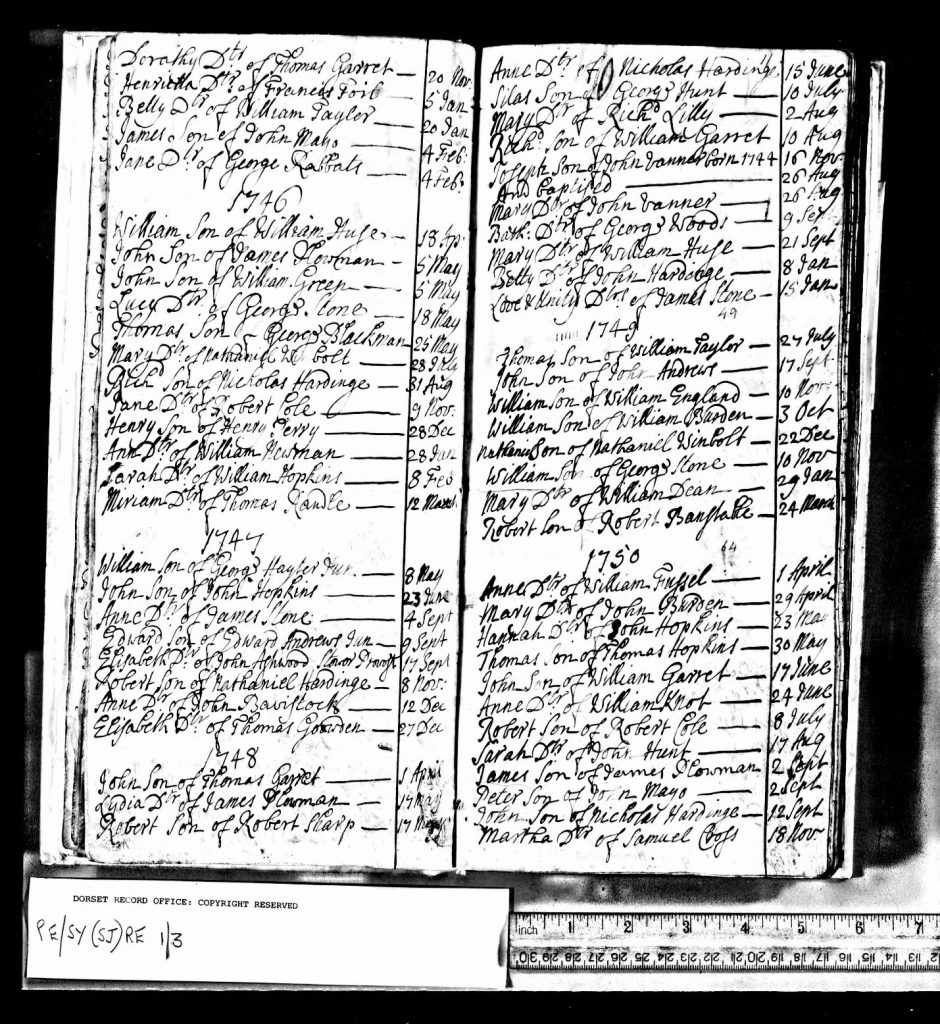 Dorathy Dtr of Thomas Garret — 20 Nov:
Henrietta Dtr of Francis Foil 5 Jan
Betty Dtr of William Taylor — 20 Jan
James Son of John Mayo — 4 Feb:
Jane Dtr of George Rabbats — 4 Feb:
1746
William Son of William Huse — 18 Ap:
John Son of James Plowman — 5 May
John Son of William Green — 5 May
Lucy Dtr of George Stone — 18 May
Thomas Son of George Blackman 25 May
Mary Dtr of Nathaniel 28 July
Richd Son of Nicholas Hardinge — 31 Aug
Jane Dtr of Robert Cole — 9 Nov:
Henry Son of Henry Perry — 28 Dec
Ann Dtr of William Newman — 28 Jan
Sarah Dtr of William Hopkins — 8 Feb
Miriam Dtr of Thomas Randle — 12 March
1747
William Son of George Hayter Jun. — 8 May
John Son of John Hopkins — 23 June
Anne Dtr of James Stone — 4 Sept
Edward Son of Edward Andrews Jun — 9 Sept
Elisabeth Dtr of John Ashword Stower Provost 17 Sept
Robert Son of Nathaniel Hardinge — 8 Nov:
Anne Dtr of John Bavistock — 12 Dec
Elisabeth Dtr of Thomas Gowden — 27 Dec
1748
John Son of Thomas Garret — 1 April
Lydia Dtr of James Plowman — 17 May
Robert Son of Robert Sharp — 17 May
Anne Dtr of Nicholas Hardinge 15 June
Silas Son of George Hunt — 10 July
Mary Dtr of Richd Lilly — 2 Aug
Richd Son of William Garret 10 Aug
Joseph Son of John Vanner born 1744 16 Nov
And Baptised — 26 Aug
Mary Dtr of John Vanner — 26 Aug
Bath: Dtr of George Woods 9 Sep
Mary Dtr of William Huse — 21 Sept
Betty Dtr of John Hardinge — 8 Jan
Love & Unity Dtrs of James Stone — 15 Jan
49
1749
Thomas Son of William Taylor — 27 July
John Son of John Andrews — 17 Sept
William Son of William England — 10 Nov:
William Son of William Burden — 3 Oct
Nathaniel Son of Nathaniel Winbolt — 22 Dec
William Son of George Stone — 10 Nov
Mary Dtr of William Dean — 29 Jan
Robert Son of Robert Banstable — 24 March
64
1750
Anne Dtr of William Fussel — 1 April
Mary Dtr of John Burden — 29 April
Hannah Dtr of John Hopkins — 23 May
Thomas Son of Thomas Hopkins — 30 May
John Son of William Garret — 17 June
Anne Dtr of William Knot — 24 June
Robert Son of Robert Cole — 8 July
Sarah Dtr of John Hunt — 17 Aug
James Son of James Plowman 2 Sept
Peter Son of John Mayo — 2 Sept
John Son of Nicholas Hardinge — 12 Sept
Martha Dtr of Samuel Cross 18 Nov
DORSET RECORD OFFICE: COPYRIGHT RESERVED
PE/SY (SJ) RE 1/3
inch 1 2 3 4 5 6 7